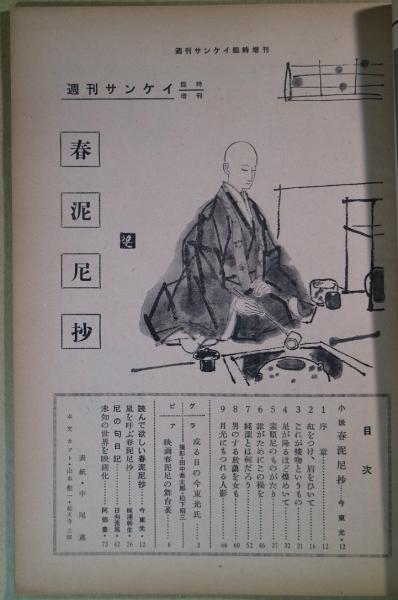 週刊サンケイ臨時増刊
週刊サンケイ 臨時増刊
春泥尼抄
目次
小説 春泥尼抄 今東光・12
1 序章 12
2 紅をつけ、眉をひいて 16
3 これが接吻というもの 21
4 星が降るほど煌めいて 32
5 素顔尼のものがたり 37
6 誰がためにこの操を 46
7 純潔とは何だろう 52
8 男のする放蕩を女も 60
9 月光にもつれる人影 66
グラビア
或る日の今東光氏 3
映画春泥尼の舞台裏 6
読んで欲しい春泥尼抄 今東光・12
嵐を呼ぶ春泥尼抄 梶浦幹生・26
尼の句日記 日向美風・42
未知の世界を映画化 阿部豊・73
表紙・中尾進